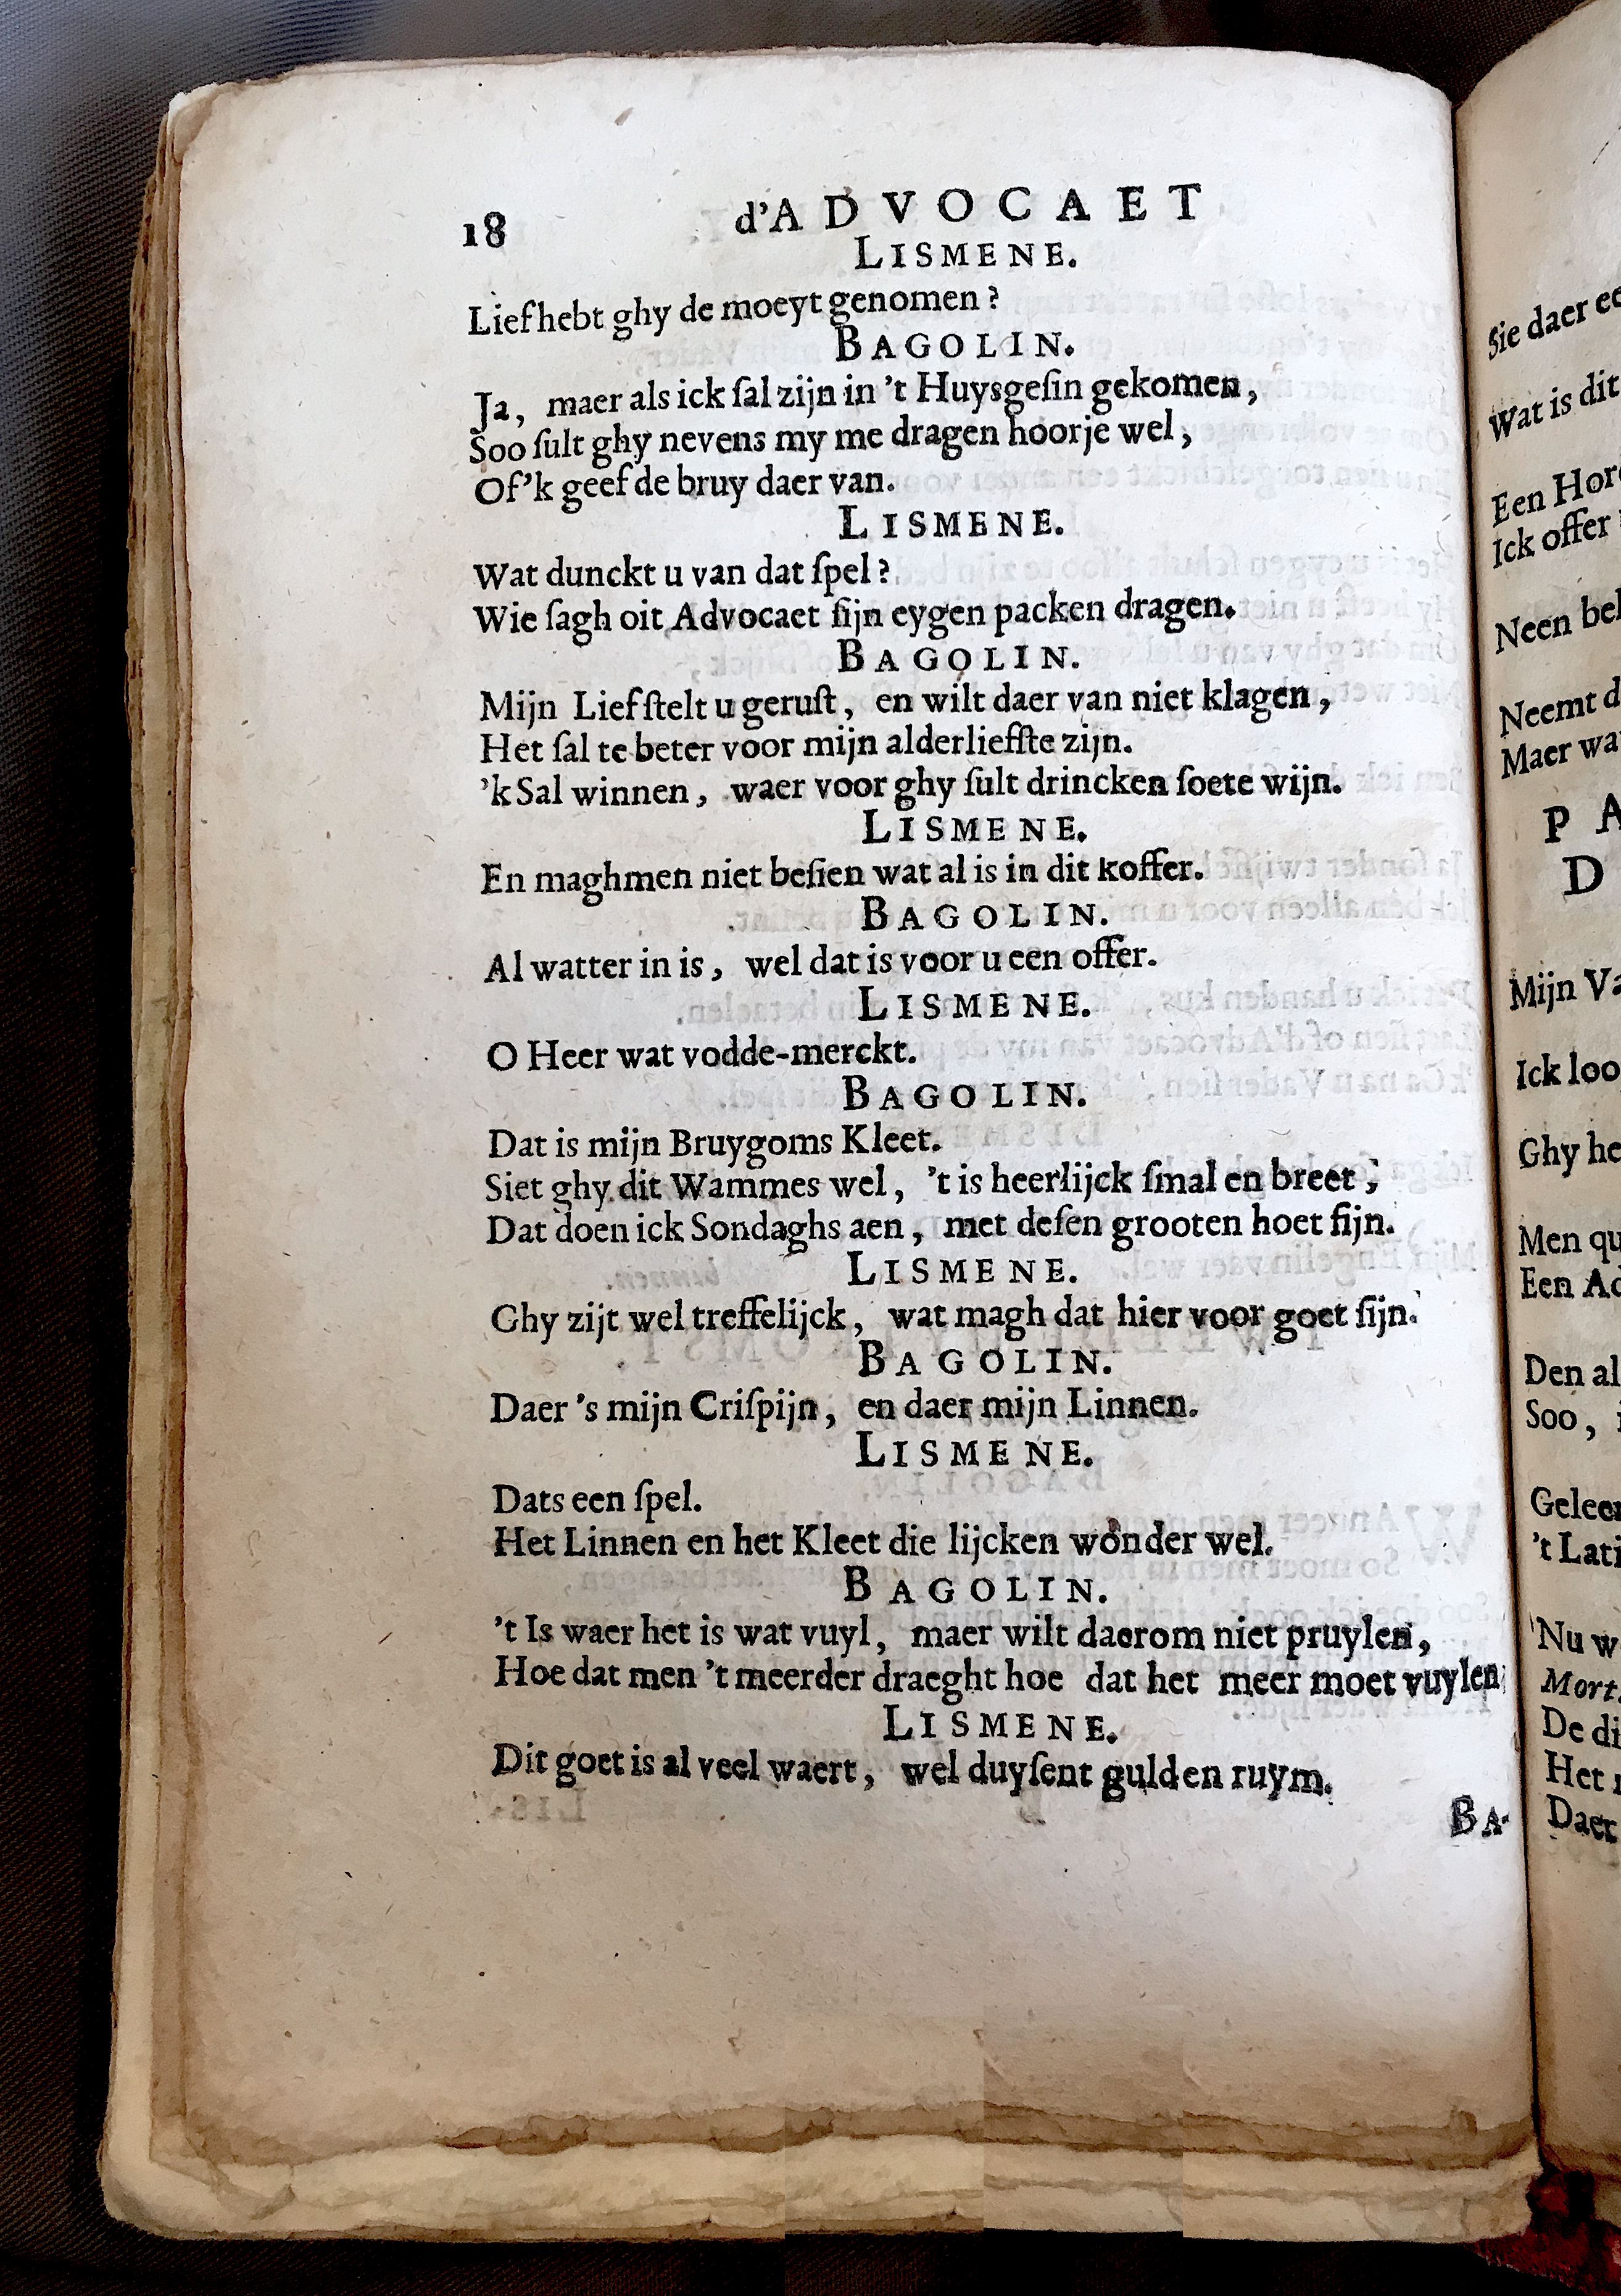 18 d'ADVOCAET
LISMENE.
Lief hebt ghy de moeyt genomen ?
BAGOLIN.
Ja, maer als ick ſal zijn in 't Huysgeſin gekomen,
Soo ſult ghy nevens my me dragen hoorje wel,
Of 'k geef de bruy daer van.
LISMENE.
Wat dunckt u van dat ſpel ?
Wie ſagh oit Advocaet ſijn eygen packen dragen.
BAGOLIN.
Mijn Lief ſtelt u geruſt, en wilt daer van niet klagen,
Het ſal te beter voor mijn alderliefſte zijn.
'k Sal winnen, waer voor ghy ſult drincken ſoete wijn.
LISMENE.
En maghmen niet beſien wat al is in dit koffer.
BAGOLIN.
Al watter in is, wel dat is voor u een offer.
LISMENE.
O Heer wat vodde-merckt.
BAGOLIN.
Dat is mijn Bruygoms Kleet.
Siet ghy dit Wammes wel, 't is heerlijck ſmal en breet;
Dat doen ick Sondaghs aen, met deſen grooten hoet fijn.
LISMENE.
Ghy zijt wel treffelijck, wat magh dat hier voor goet ſijn.
BAGOLIN.
Daer 's mijn Criſpijn, en daer mijn Linnen.
LISMENE.
Dats een ſpel.
Het Linnen en het Kleet die lijcken wonder wel.
BAGOLIN.
't Is waer het is wat vuyl, maer wilt daerom niet pruylen,
Hoe dat men 't meerder draeght hoe dat het meer moet vuylen
LISMENE.
Dit goet is al veel waert, wel duyſent gulden ruym.
BA-
Sie daer
Wat is dit
Een
Ick offer
Neen
Neemt
Maer
P A
D
Mijn
Ick
Ghy
Men
Een
Den
Soo,
't
Nu
Mort.
De
Het
Daer